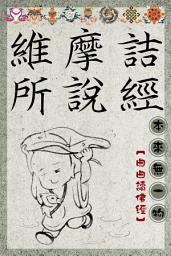 維摩詰
所說經
本來無一物
【由由讀佛經】